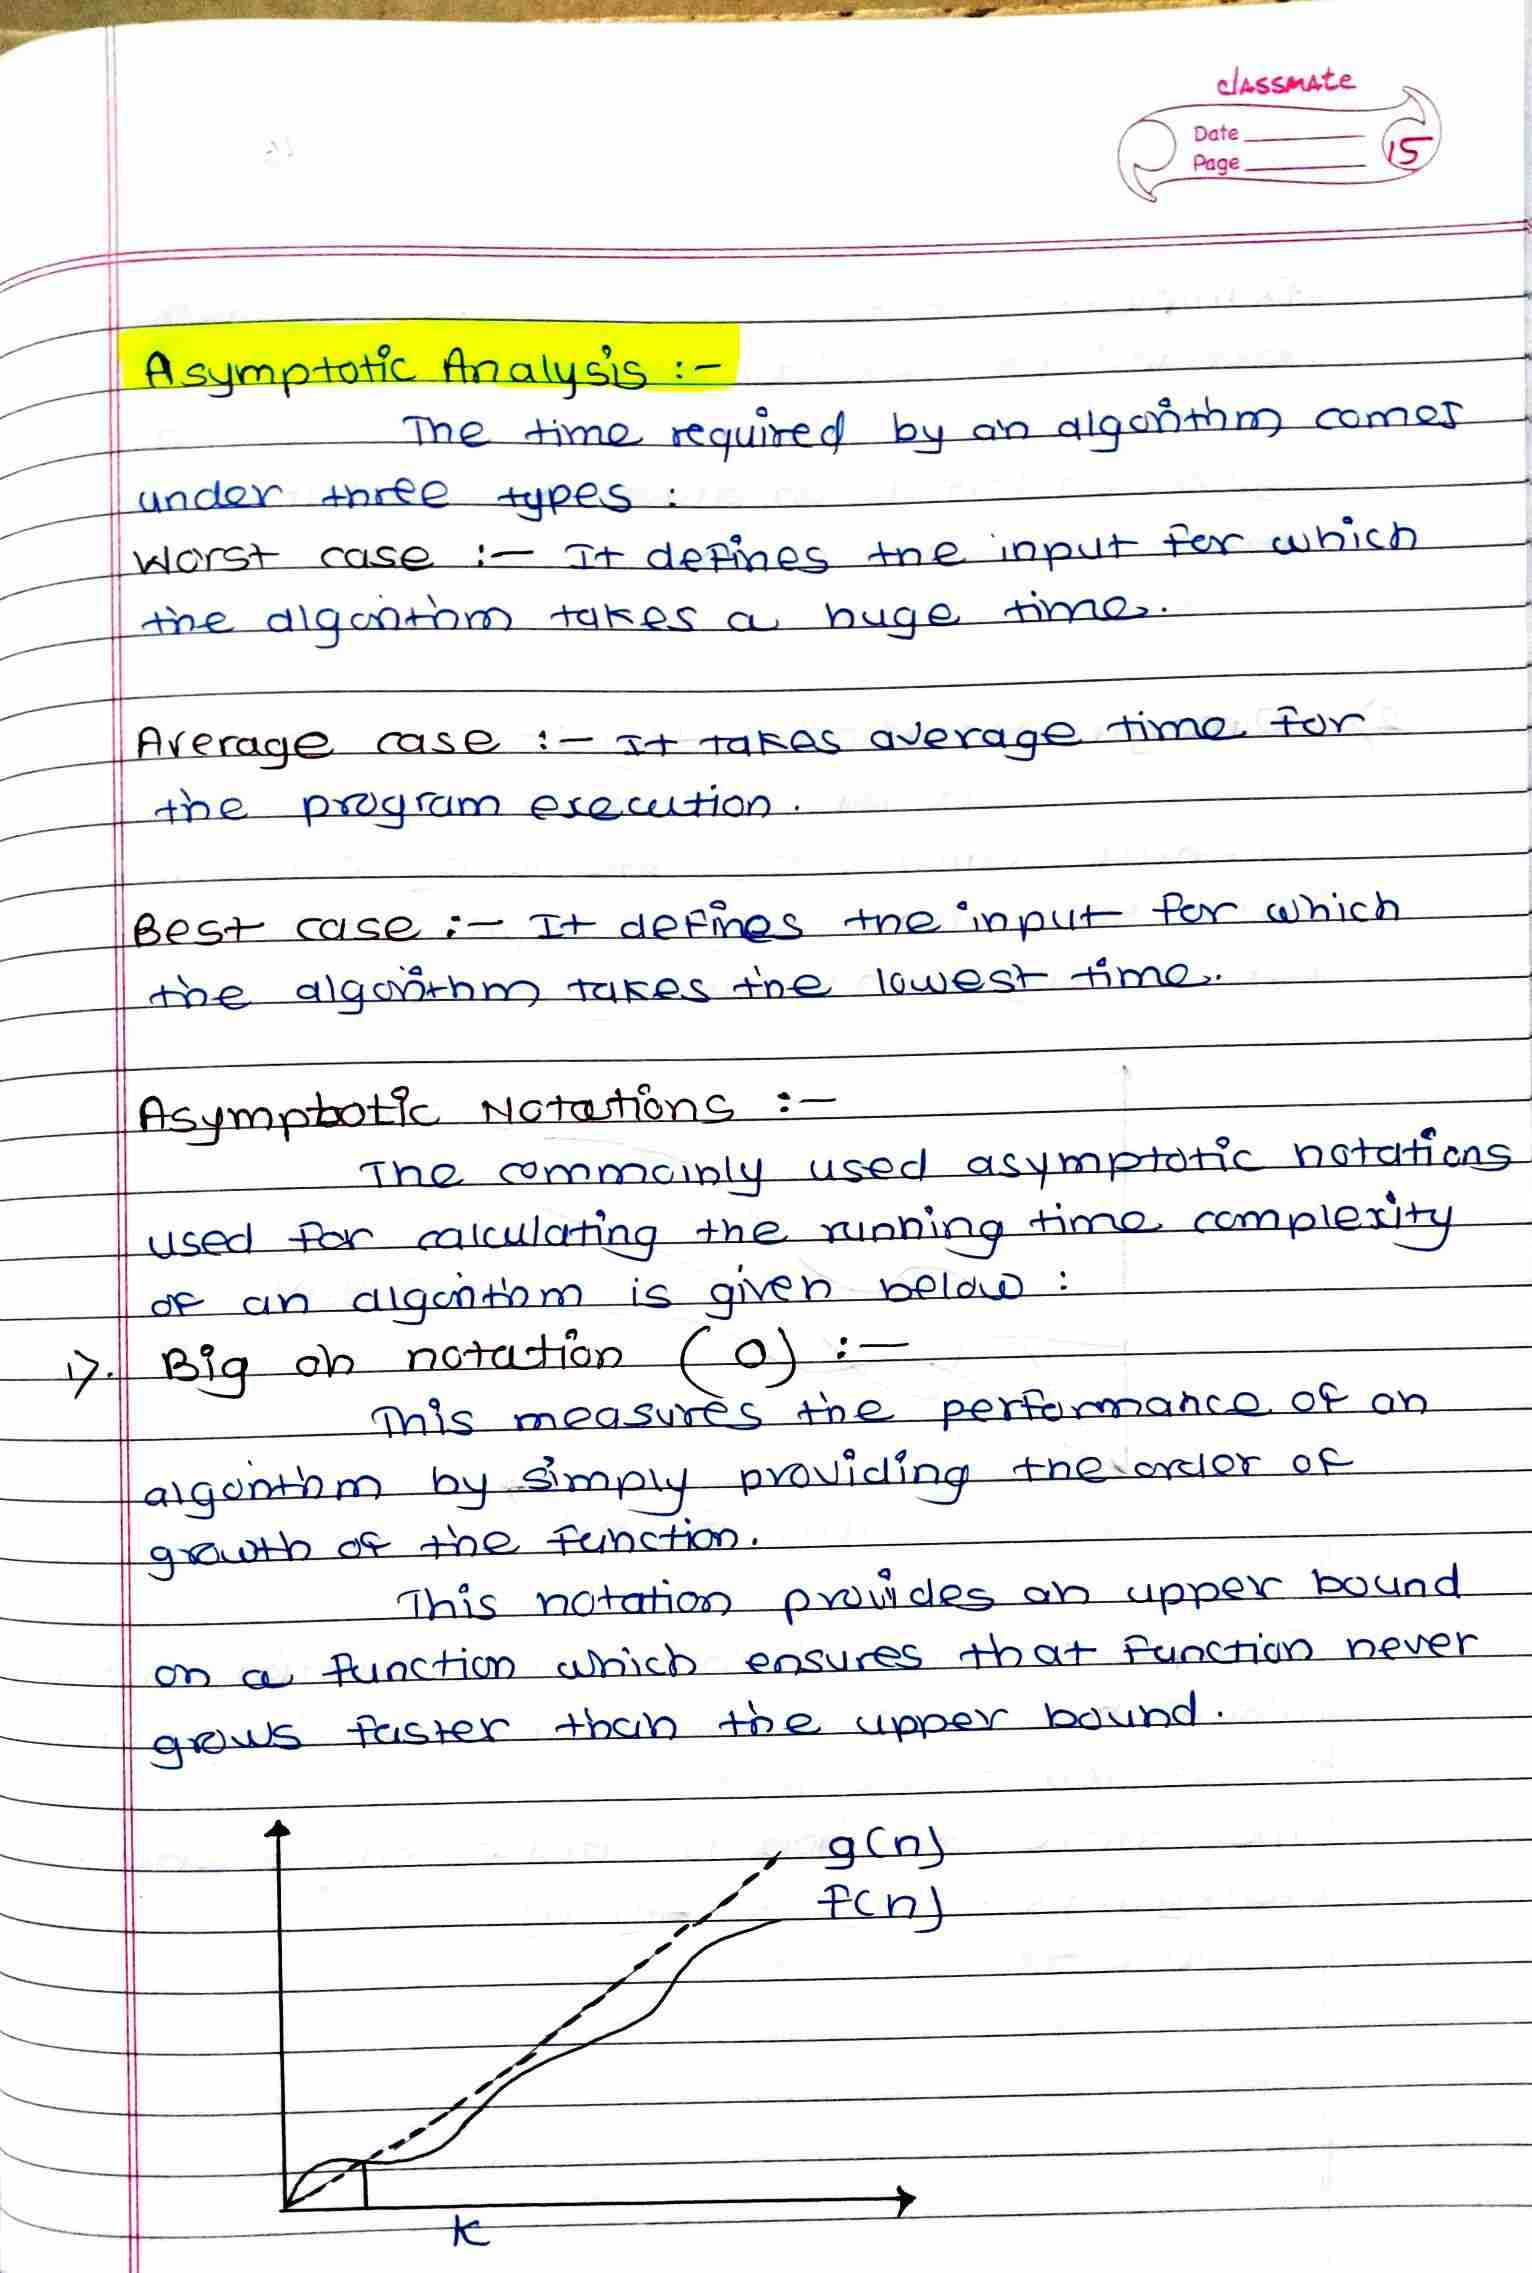 classmate
Date
Page
15
Asymptotic Analysis :-
The time required by an algorithm comes
under three types :
Worst case :- It defines the input for which
the algorithm takes a huge time.
Average case :- It takes average time for
the program execution.
Best case :- It defines the input for which
the algorithm takes the lowest time.
Asymptotic Notations :-
The commainly used asymptotic notations
used for calculating the running time complexity
of an algorithm is given below :
1). Big oh notation (O) :-
This measures the performance of an
algorithm by simply providing the order of
growth of the function.
This notation provides an upper bound
on a function which ensures that function never
grows faster than the upper bound.
g(n)
f(n)
k